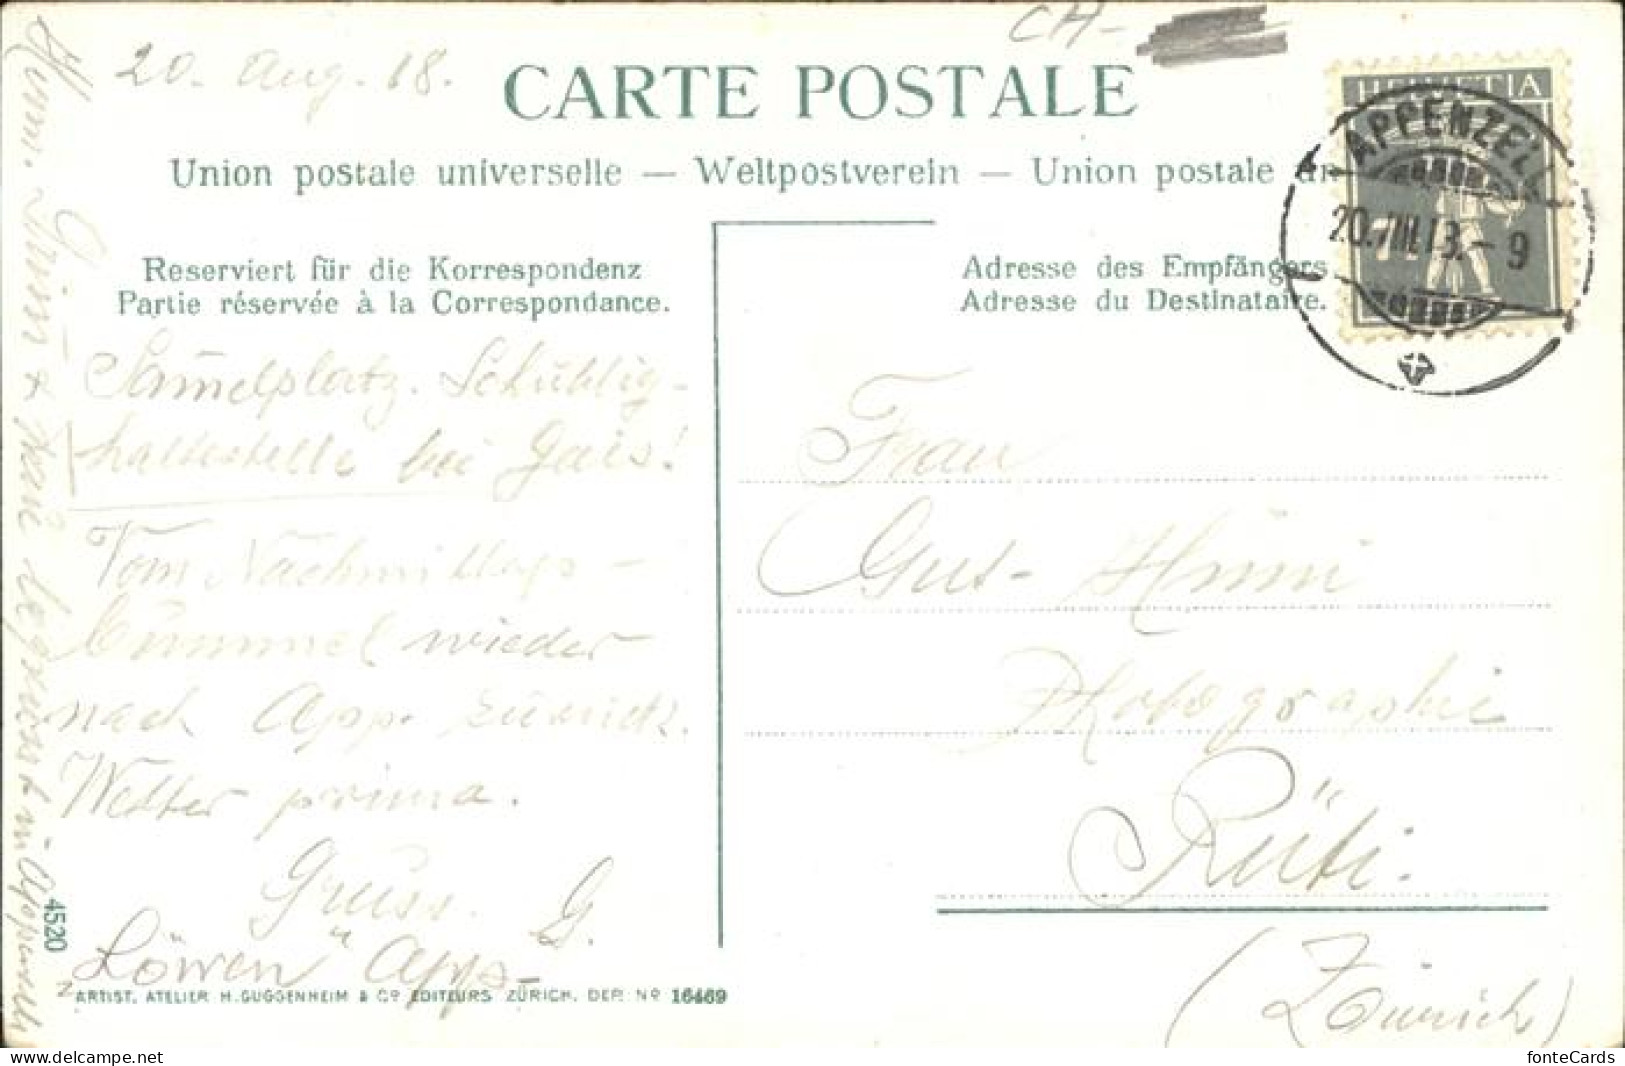 CH-
20. Aug. 18.
CARTE POSTALE
Union postale universelle — Weltpostverein — Union postale un
HELVETIA
APPENZELL
20.VIII.18.-9
7½
Reserviert für die Korrespondenz
Partie réservée à la Correspondance.
Adresse des Empfängers
Adresse du Destinataire.
Samelplatz. Schühlig-
haltestelle bei Gais!
Vom Nachmittags-
bummel wieder
nach App. zurück.
Wetter prima.
Gruss. G.
"Löwen" App-
Frau
Gut-
Photographie
Rüti.
(Zürich)
begrüsst in Appenzell
4520
ARTIST. ATELIER H. GUGGENHEIM & Co EDITEURS ZÜRICH. DEP. No 16469
www.delcampe.net
fonteCards